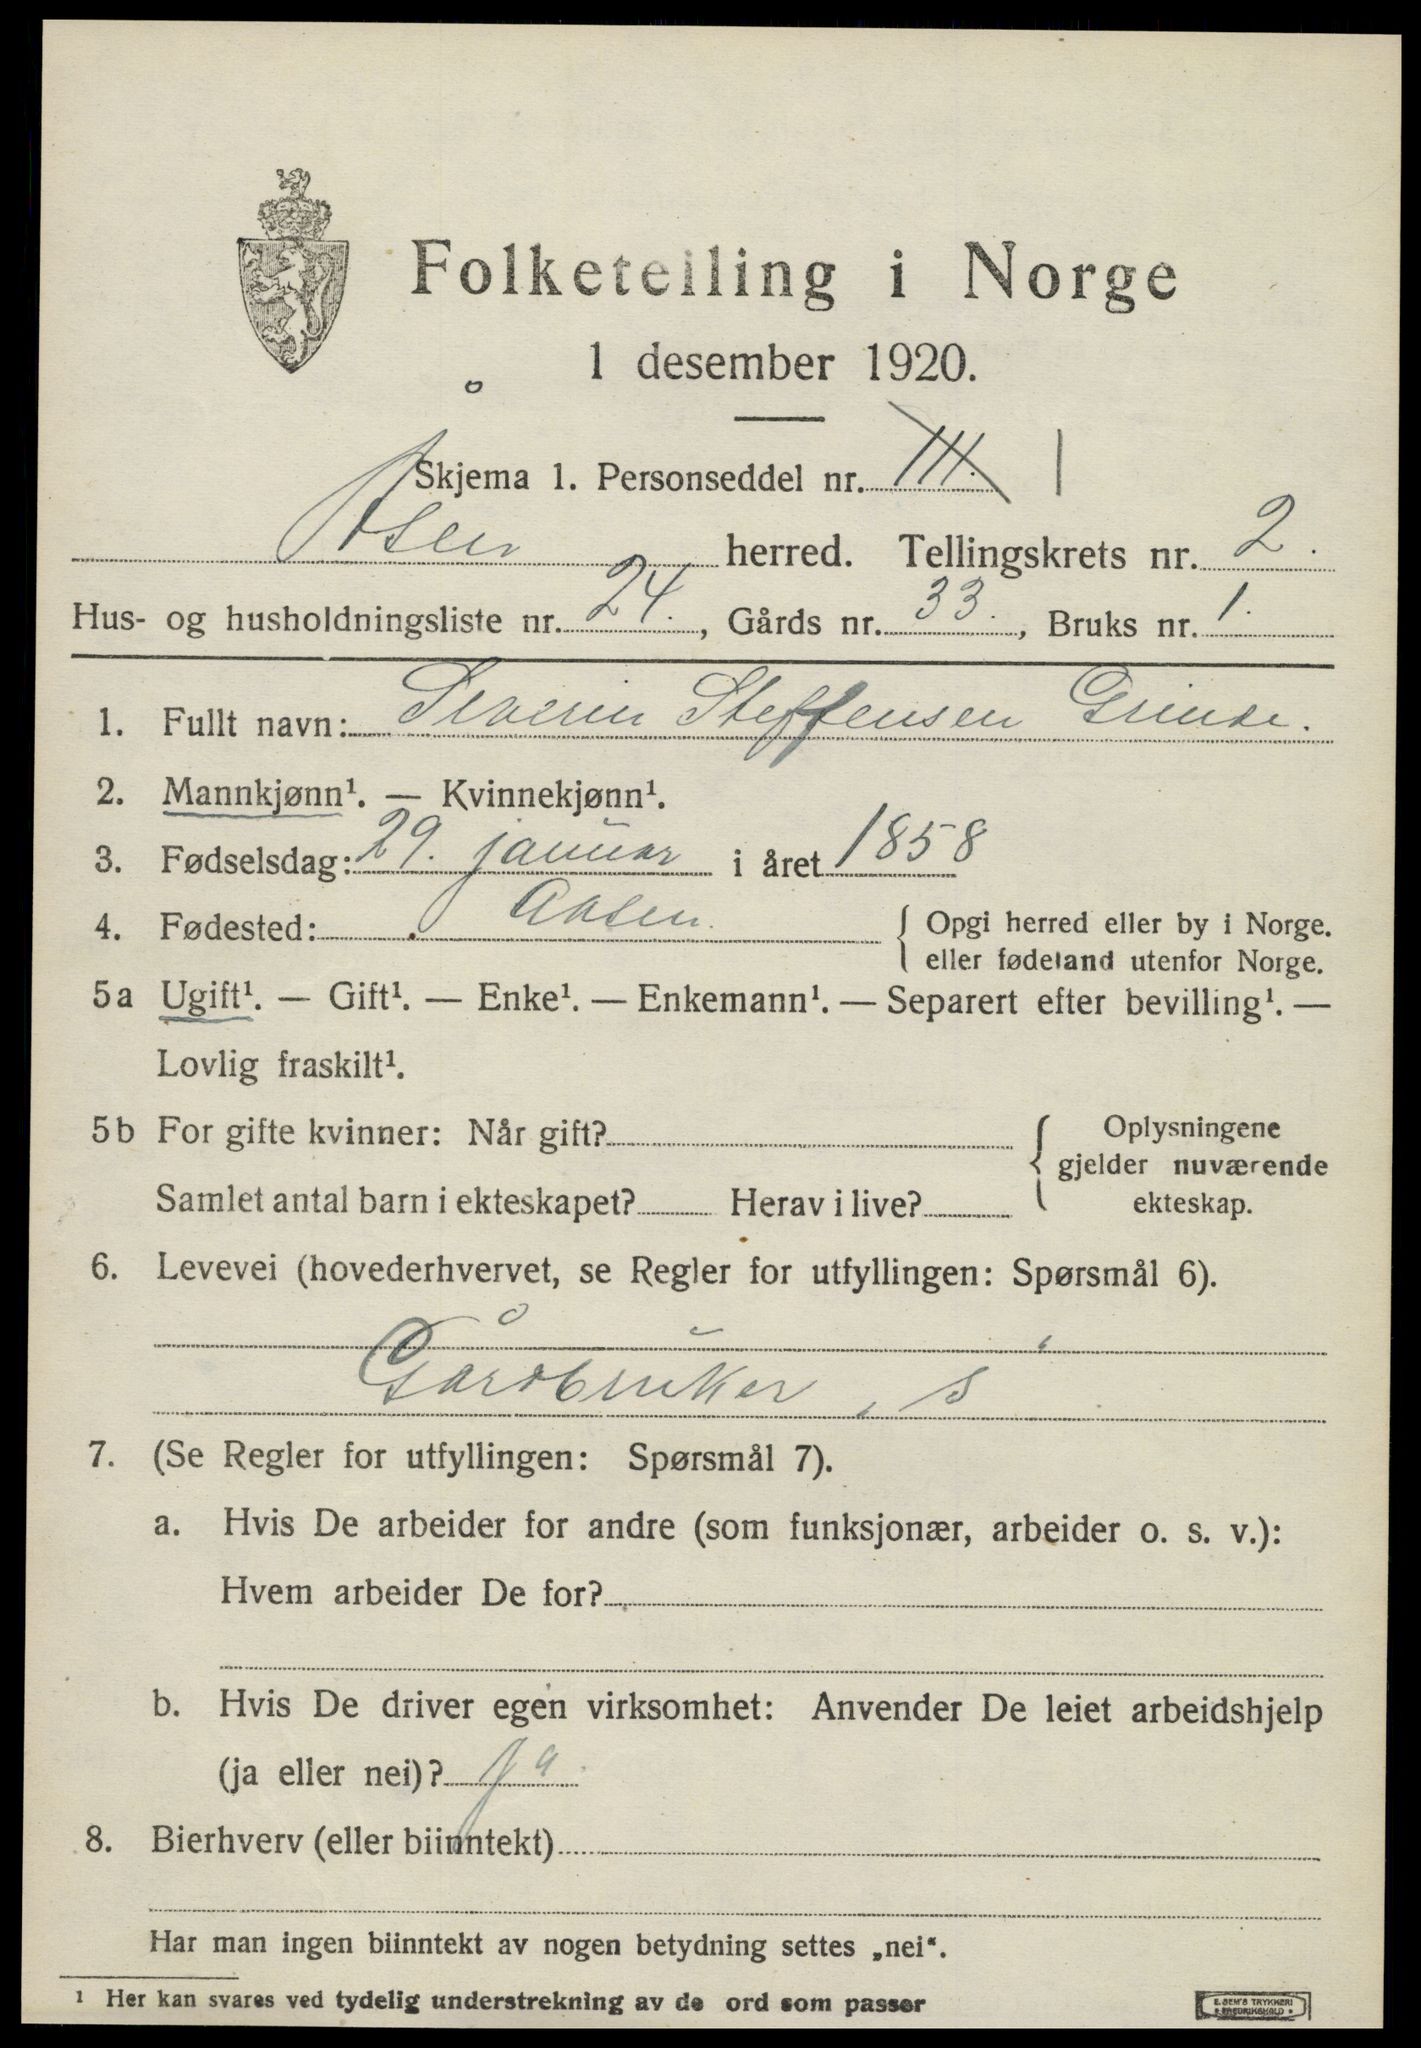 Folketelling i Norge
1 desember 1920.
Skjema 1. Personseddel nr. III. 1
Åsen herred. Tellingskrets nr. 2.
Hus- og husholdningsliste nr. 24., Gårds nr. 33., Bruks nr. 1.
1. Fullt navn: Severin Steffensen Grinde.
2. Mannkjønn¹. — Kvinnekjønn¹.
3. Fødselsdag: 29. januar i året 1858
4. Fødested: Aasen. Opgi herred eller by i Norge.
eller fødeland utenfor Norge.
5a Ugift¹. — Gift¹. — Enke¹. — Enkemann¹. — Separert efter bevilling¹. —
Lovlig fraskilt¹.
5b For gifte kvinner: Når gift? Oplysningene
gjelder nuværende
Samlet antal barn i ekteskapet? Herav i live? ekteskap.
6. Levevei (hovederhvervet, se Regler for utfyllingen: Spørsmål 6).
Gårdbruker, s
7. (Se Regler for utfyllingen: Spørsmål 7).
a. Hvis De arbeider for andre (som funksjonær, arbeider o. s. v.):
Hvem arbeider De for?
b. Hvis De driver egen virksomhet: Anvender De leiet arbeidshjelp
(ja eller nei)? ja
8. Bierhverv (eller biinntekt)
Har man ingen biinntekt av nogen betydning settes „nei“.
¹ Her kan svares ved tydelig understrekning av de ord som passer
E. SEM'S TRYKKERI
FREDRIKSHALD